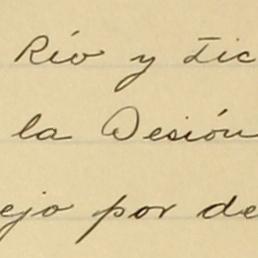 Río y Lic
la Desión
ejo por de